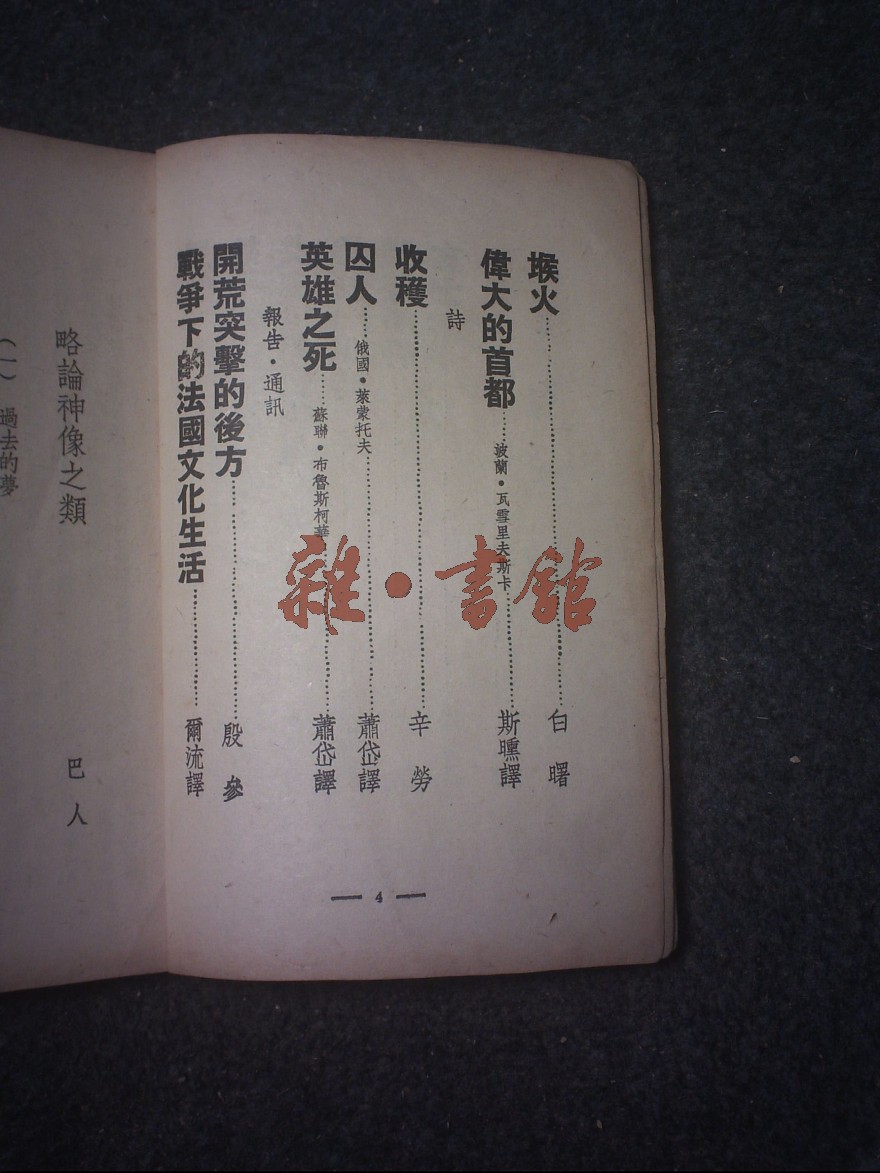 堠火……白曙
偉大的首都……波蘭·瓦雪里夫斯卡……斯曛譯
詩
收穫……辛勞
囚人……俄國·萊蒙托夫……蕭岱譯
英雄之死……蘇聯·布魯斯柯華……蕭岱譯
報告·通訊
開荒突擊的後方……殷參
戰爭下的法國文化生活……爾流譯
— 4 —
略論神像之類
巴人
(一) 過去的夢
雜·書館